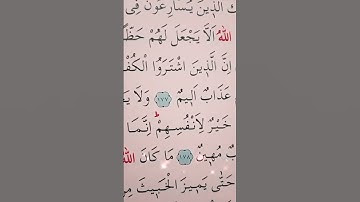 كَ الَّذِينَ يُسَارِعُونَ فِي
اللّٰهُ اَلَّا يَجْعَلَ لَهُمْ حَظًّا
اِنَّ الَّذِينَ اشْتَرَوُا الْكُفْ
عَذَابٌ اَلِيمٌ ﴿١٧٧﴾ وَلَا يَ
خَيْرٌ لِاَنْفُسِهِمْ اِنَّمَا
بٌ مُهِينٌ ﴿١٧٨﴾ مَا كَانَ اللّٰهُ
حَتّٰى يَمِيزَ الْخَبِيثَ مِنَ